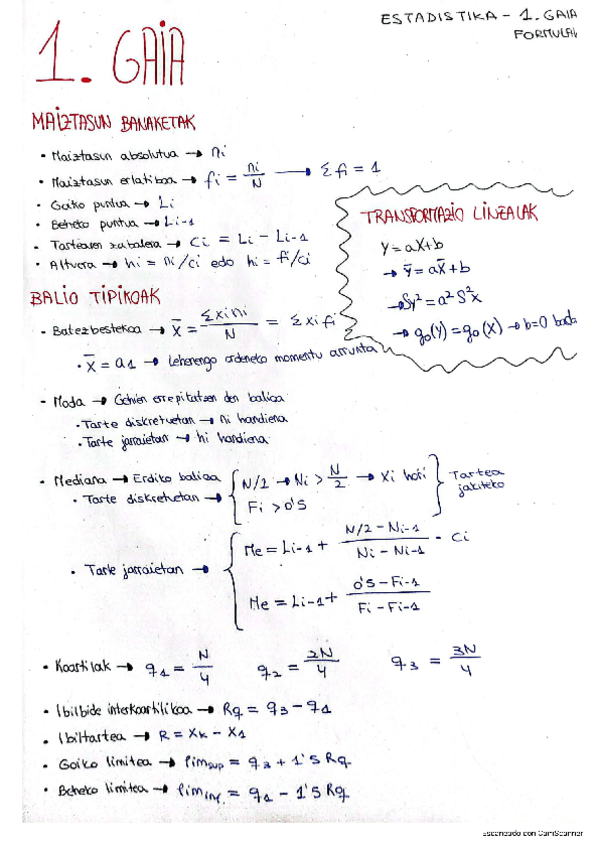 ESTADISTIKA - 1. GAIA
FORMULAK
1. GAIA
MAIZTASUN BANAKETAK
• Maiztasun absolutua → ni
• Maiztasun erlatiboa → fi = ni/N → Σfi = 1
• Goiko puntua → Li
• Beheko puntua → Li-1
• Tartearen zabalera → Ci = Li - Li-1
• Altuera → hi = ni/ci edo hi = fi/ci
TRANSFORMAZIO LINEALAK
Y = aX + b
→ Ȳ = aX̄ + b
→ Sy² = a² S²x
→ g₀(Y) = g₀(X) → b=0 bada
BALIO TIPIKOAK
• Batezbestekoa → X̄ = Σxini/N = Σxifi
• X̄ = a1 → Lehenengo ordeneko momentu arrunta
• Moda → Gehien errepikatzen den balioa
• Tarte diskretuetan → ni handiena
• Tarte jarraietan → hi handiena
• Mediana → Erdiko balioa
• Tarte diskretuetan →
N/2 → Ni > N/2 → Xi hori
Fi > 0'5
Tartea
jakiteko
• Tarte jarraietan →
Me = Li-1 + (N/2 - Ni-1)/(Ni - Ni-1) · Ci
Me = Li-1 + (0'5 - Fi-1)/(Fi - Fi-1)
• Koartilak → q1 = N/4 q2 = 2N/4 q3 = 3N/4
• Ibilbide interkoartilikoa → Rq = q3 - q1
• Ibiltartea → R = Xk - X1
• Goiko limitea → lim sup = q3 + 1'5 Rq
• Beheko limitea → lim inf. = q1 - 1'5 Rq
Escaneado con CamScanner